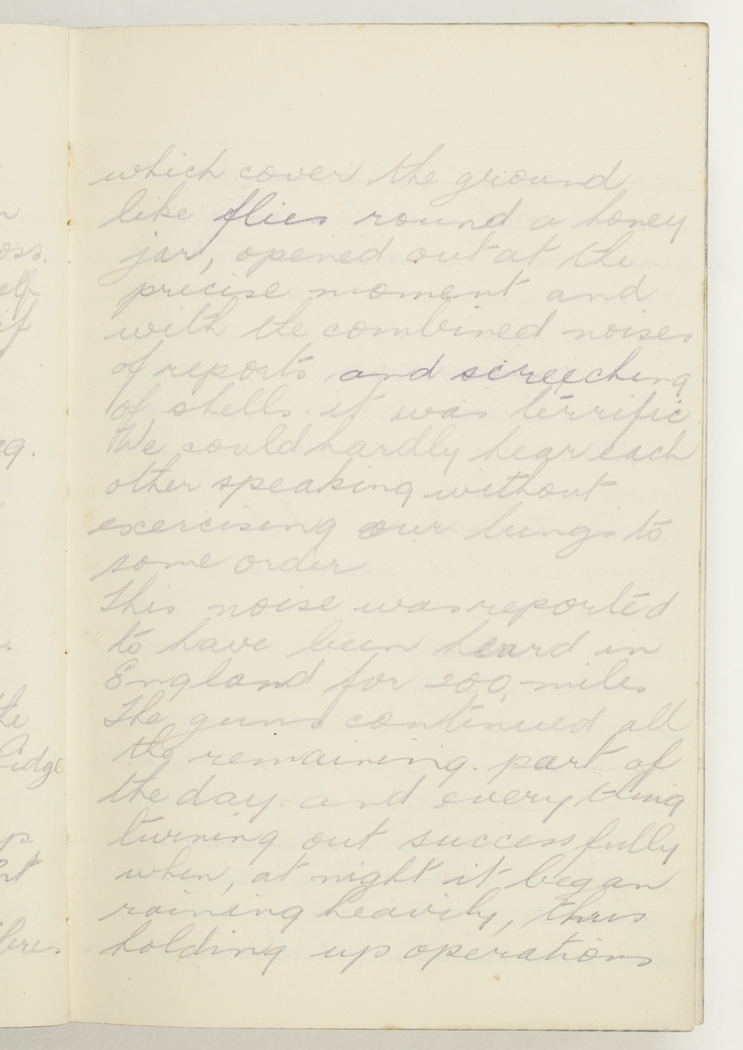 which cover the ground
like flies round a honey
jar, opened out at the
precise moment and
with the combined noises
of reports and screeching
of shells it was terrific
We could hardly hear each
other speaking without
exercising our lungs to
some order
This noise was reported
to have been heard in
England for 200 miles
The guns continued all
the remaining part of
the day and everything
turning out successfully
when, at night it began
raining heavily, thus
holding up operations